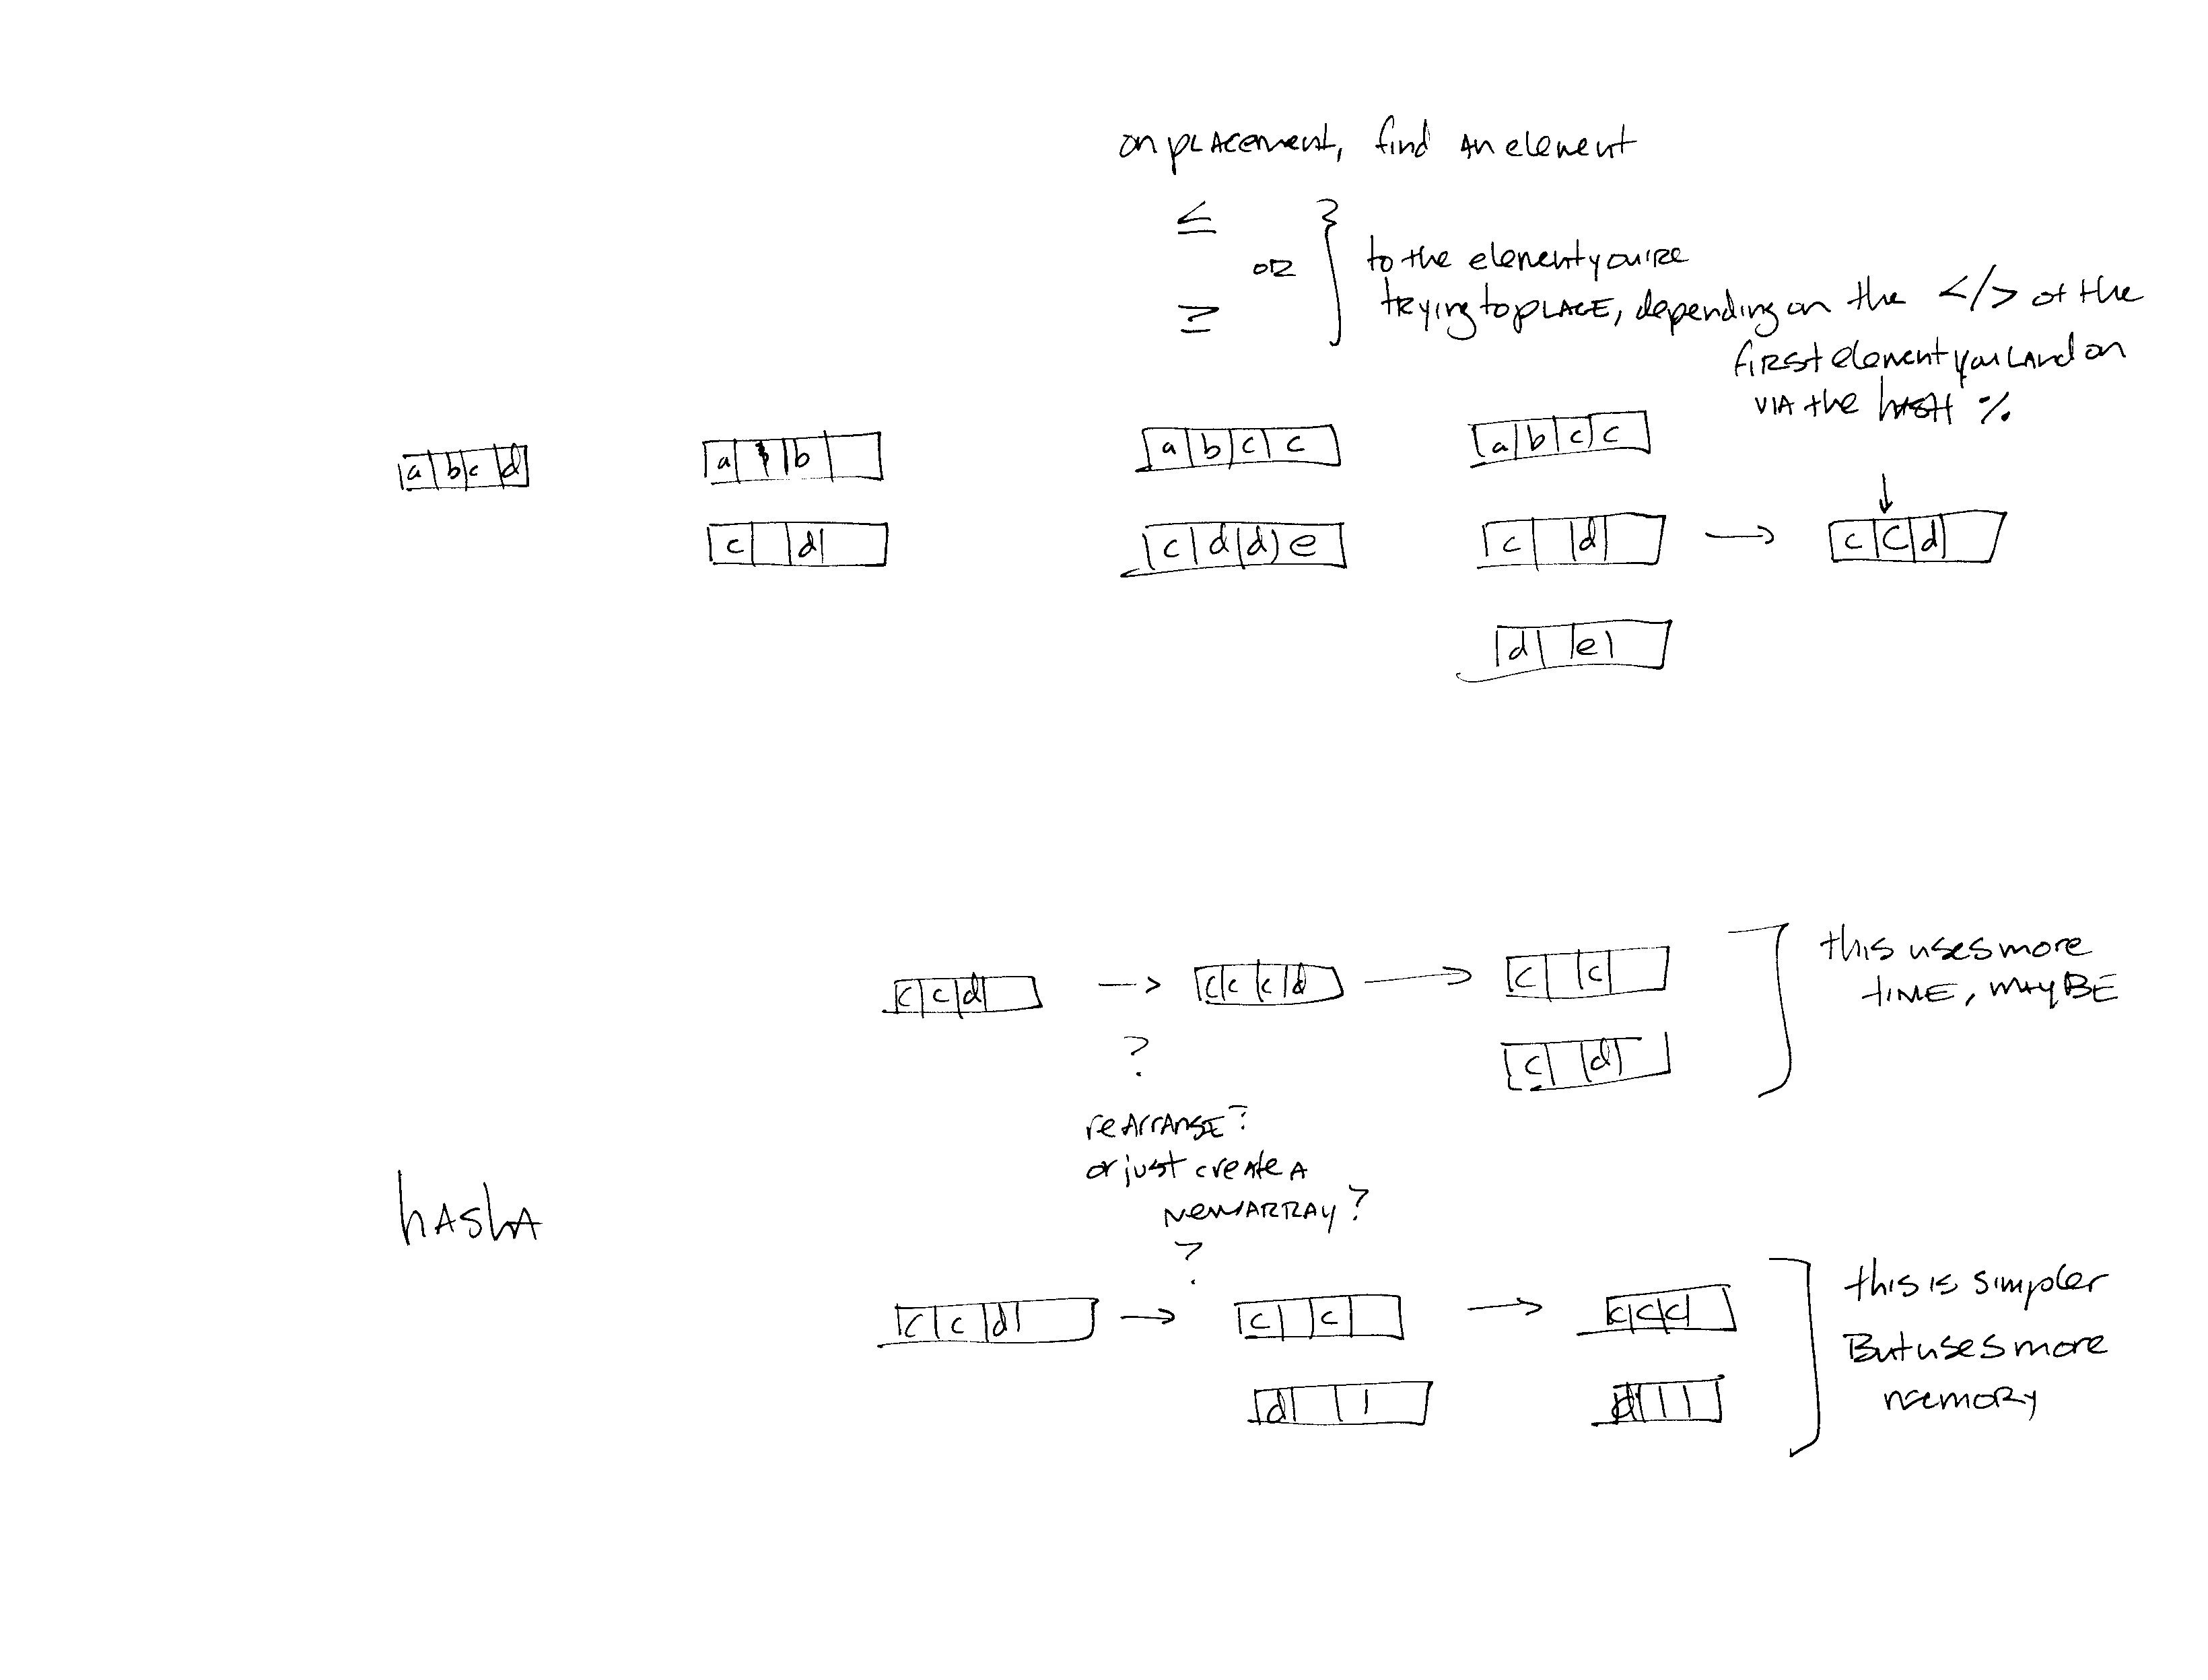 on placement, find an element
≤
or
≥
to the element you're
trying to place, depending on the </> of the
first element you land on
via the hash %
a b c d
a b
a b c c
a b c c
c d
c d d e
c d → c c d
d e
c c d → c c c d → c c
c d
this uses more
time, maybe
?
rearrange?
or just create a
new array?
?
hasha
c c d → c c → c c c
d
d
this is simpler
But uses more
memory